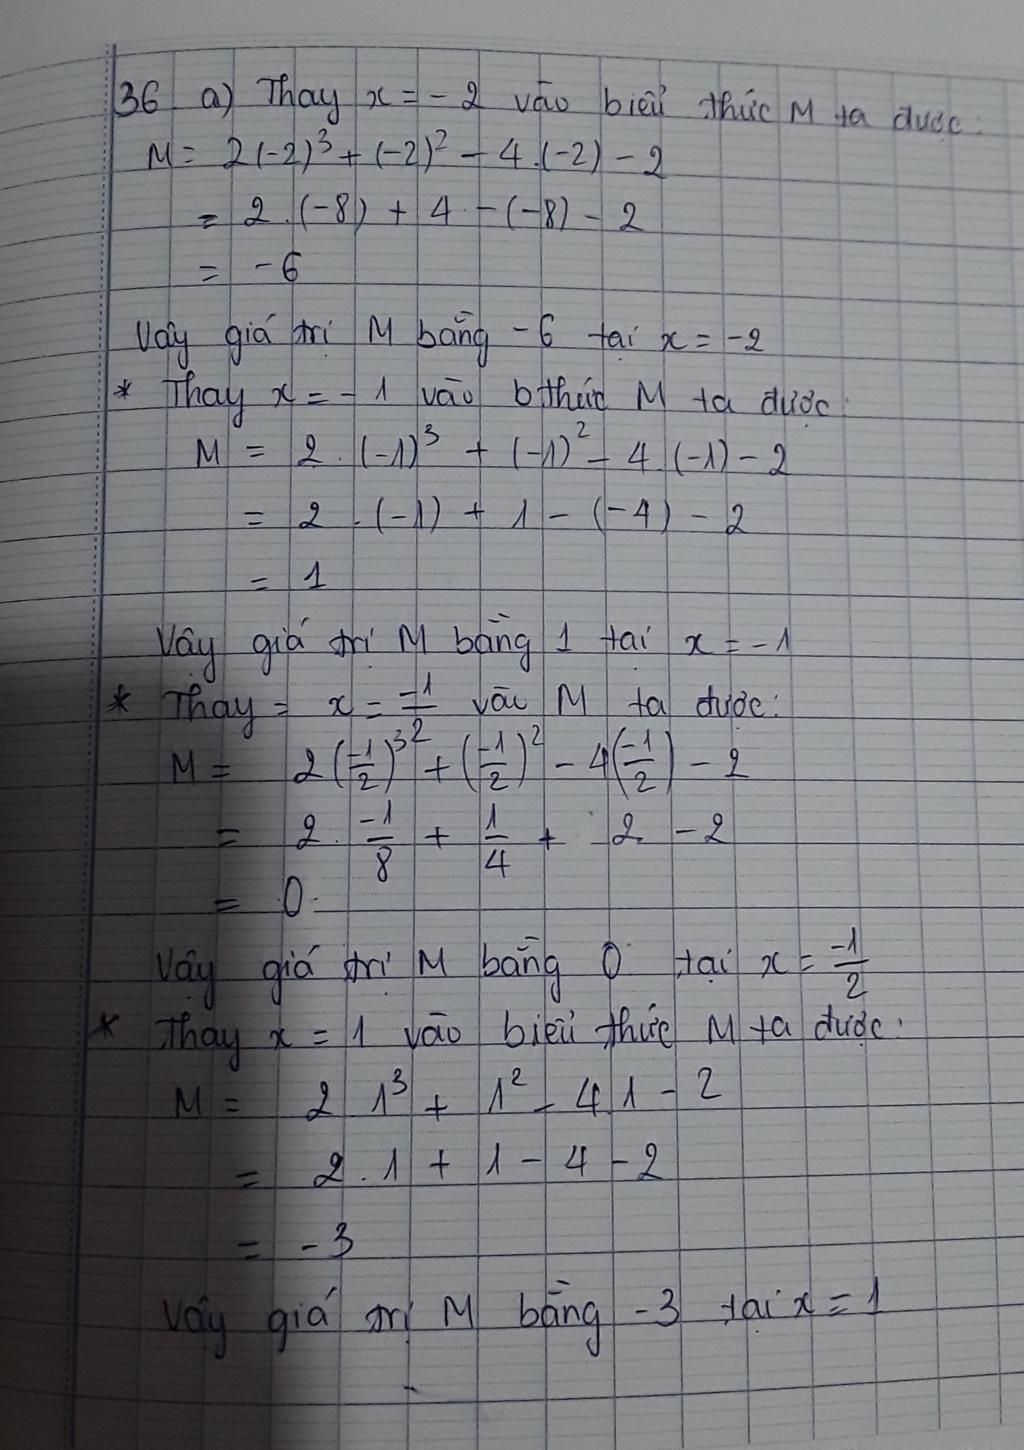 36 a) Thay x = - 2 vào biểu thức M ta được:
M = 2(-2)³ + (-2)² - 4.(-2) - 2
= 2.(-8) + 4 - (-8) - 2
= -6
Vậy giá trị M bằng -6 tại x = -2
* Thay x = -1 vào bthức M ta được:
M = 2.(-1)³ + (-1)² - 4.(-1) - 2
= 2.(-1) + 1 - (-4) - 2
= 1
Vậy giá trị M bằng 1 tại x = -1
* Thay = x = -1/2 vào M ta được:
M = 2(-1/2)³ + (-1/2)² - 4(-1/2) - 2
= 2. -1/8 + 1/4 + 2 - 2
= 0
Vậy giá trị M bằng 0 tại x = -1/2
* Thay x = 1 vào biểu thức M ta được:
M = 2 1³ + 1² - 4.1 - 2
= 2.1 + 1 - 4 - 2
= -3
Vậy giá trị M bằng -3 tại x = 1